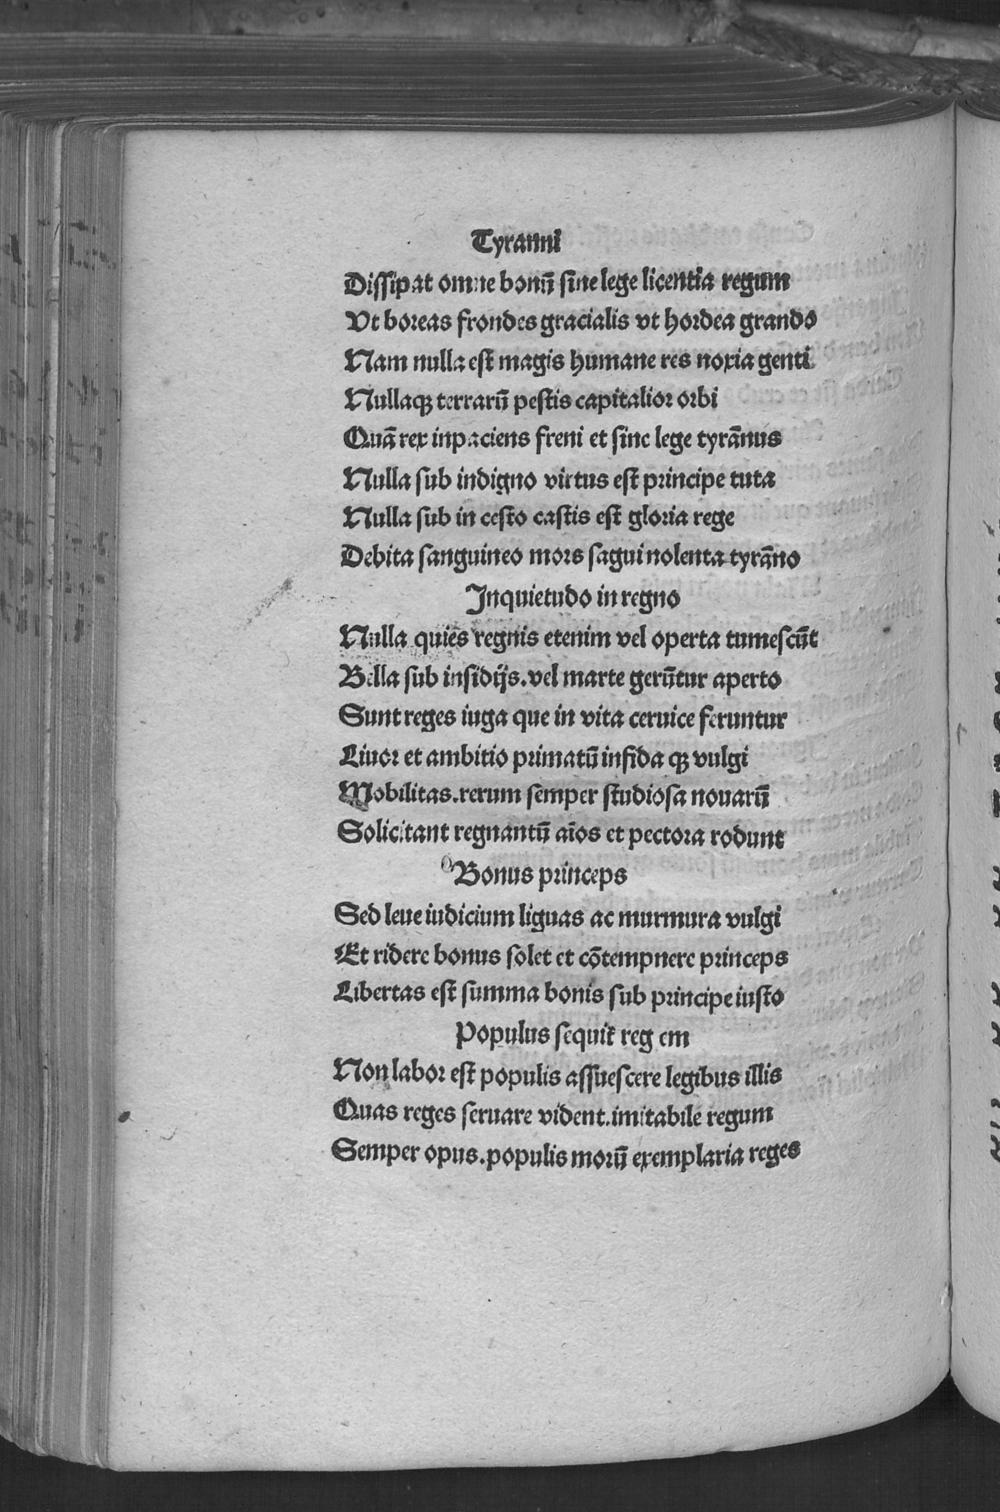 Tyranni
Dissipat omne bonū sine lege licentia regum
Vt boreas frondes gracialis vt hordea grando
Nam nulla est magis humane res noxia genti
Nullaqꝫ terrarū pestis capitalior orbi
Quā rex inpaciens freni et sine lege tyrānus
Nulla sub indigno virtus est principe tuta
Nulla sub in cesto castis est gloria rege
Debita sanguineo mors sagui nolenta tyrāno
Inquietudo in regno
Nulla quies regnis etenim vel operta tumescūt
Bella sub insidijs.vel marte gerūtur aperto
Sunt reges iuga que in vita ceruice feruntur
Liuor et ambitio primatū infida qꝫ vulgi
Mobilitas.rerum semper studiosa nouarū
Solicitant regnantū aīos et pectora rodunt
Bonus princeps
Sed leue iudicium liguas ac murmura vulgi
Et ridere bonus solet et cōtempnere princeps
Libertas est summa bonis sub principe iusto
Populus sequit᷑ reg em
Non labor est populis assuescere legibus illis
Quas reges seruare vident.imitabile regum
Semper opus.populis morū exemplaria reges